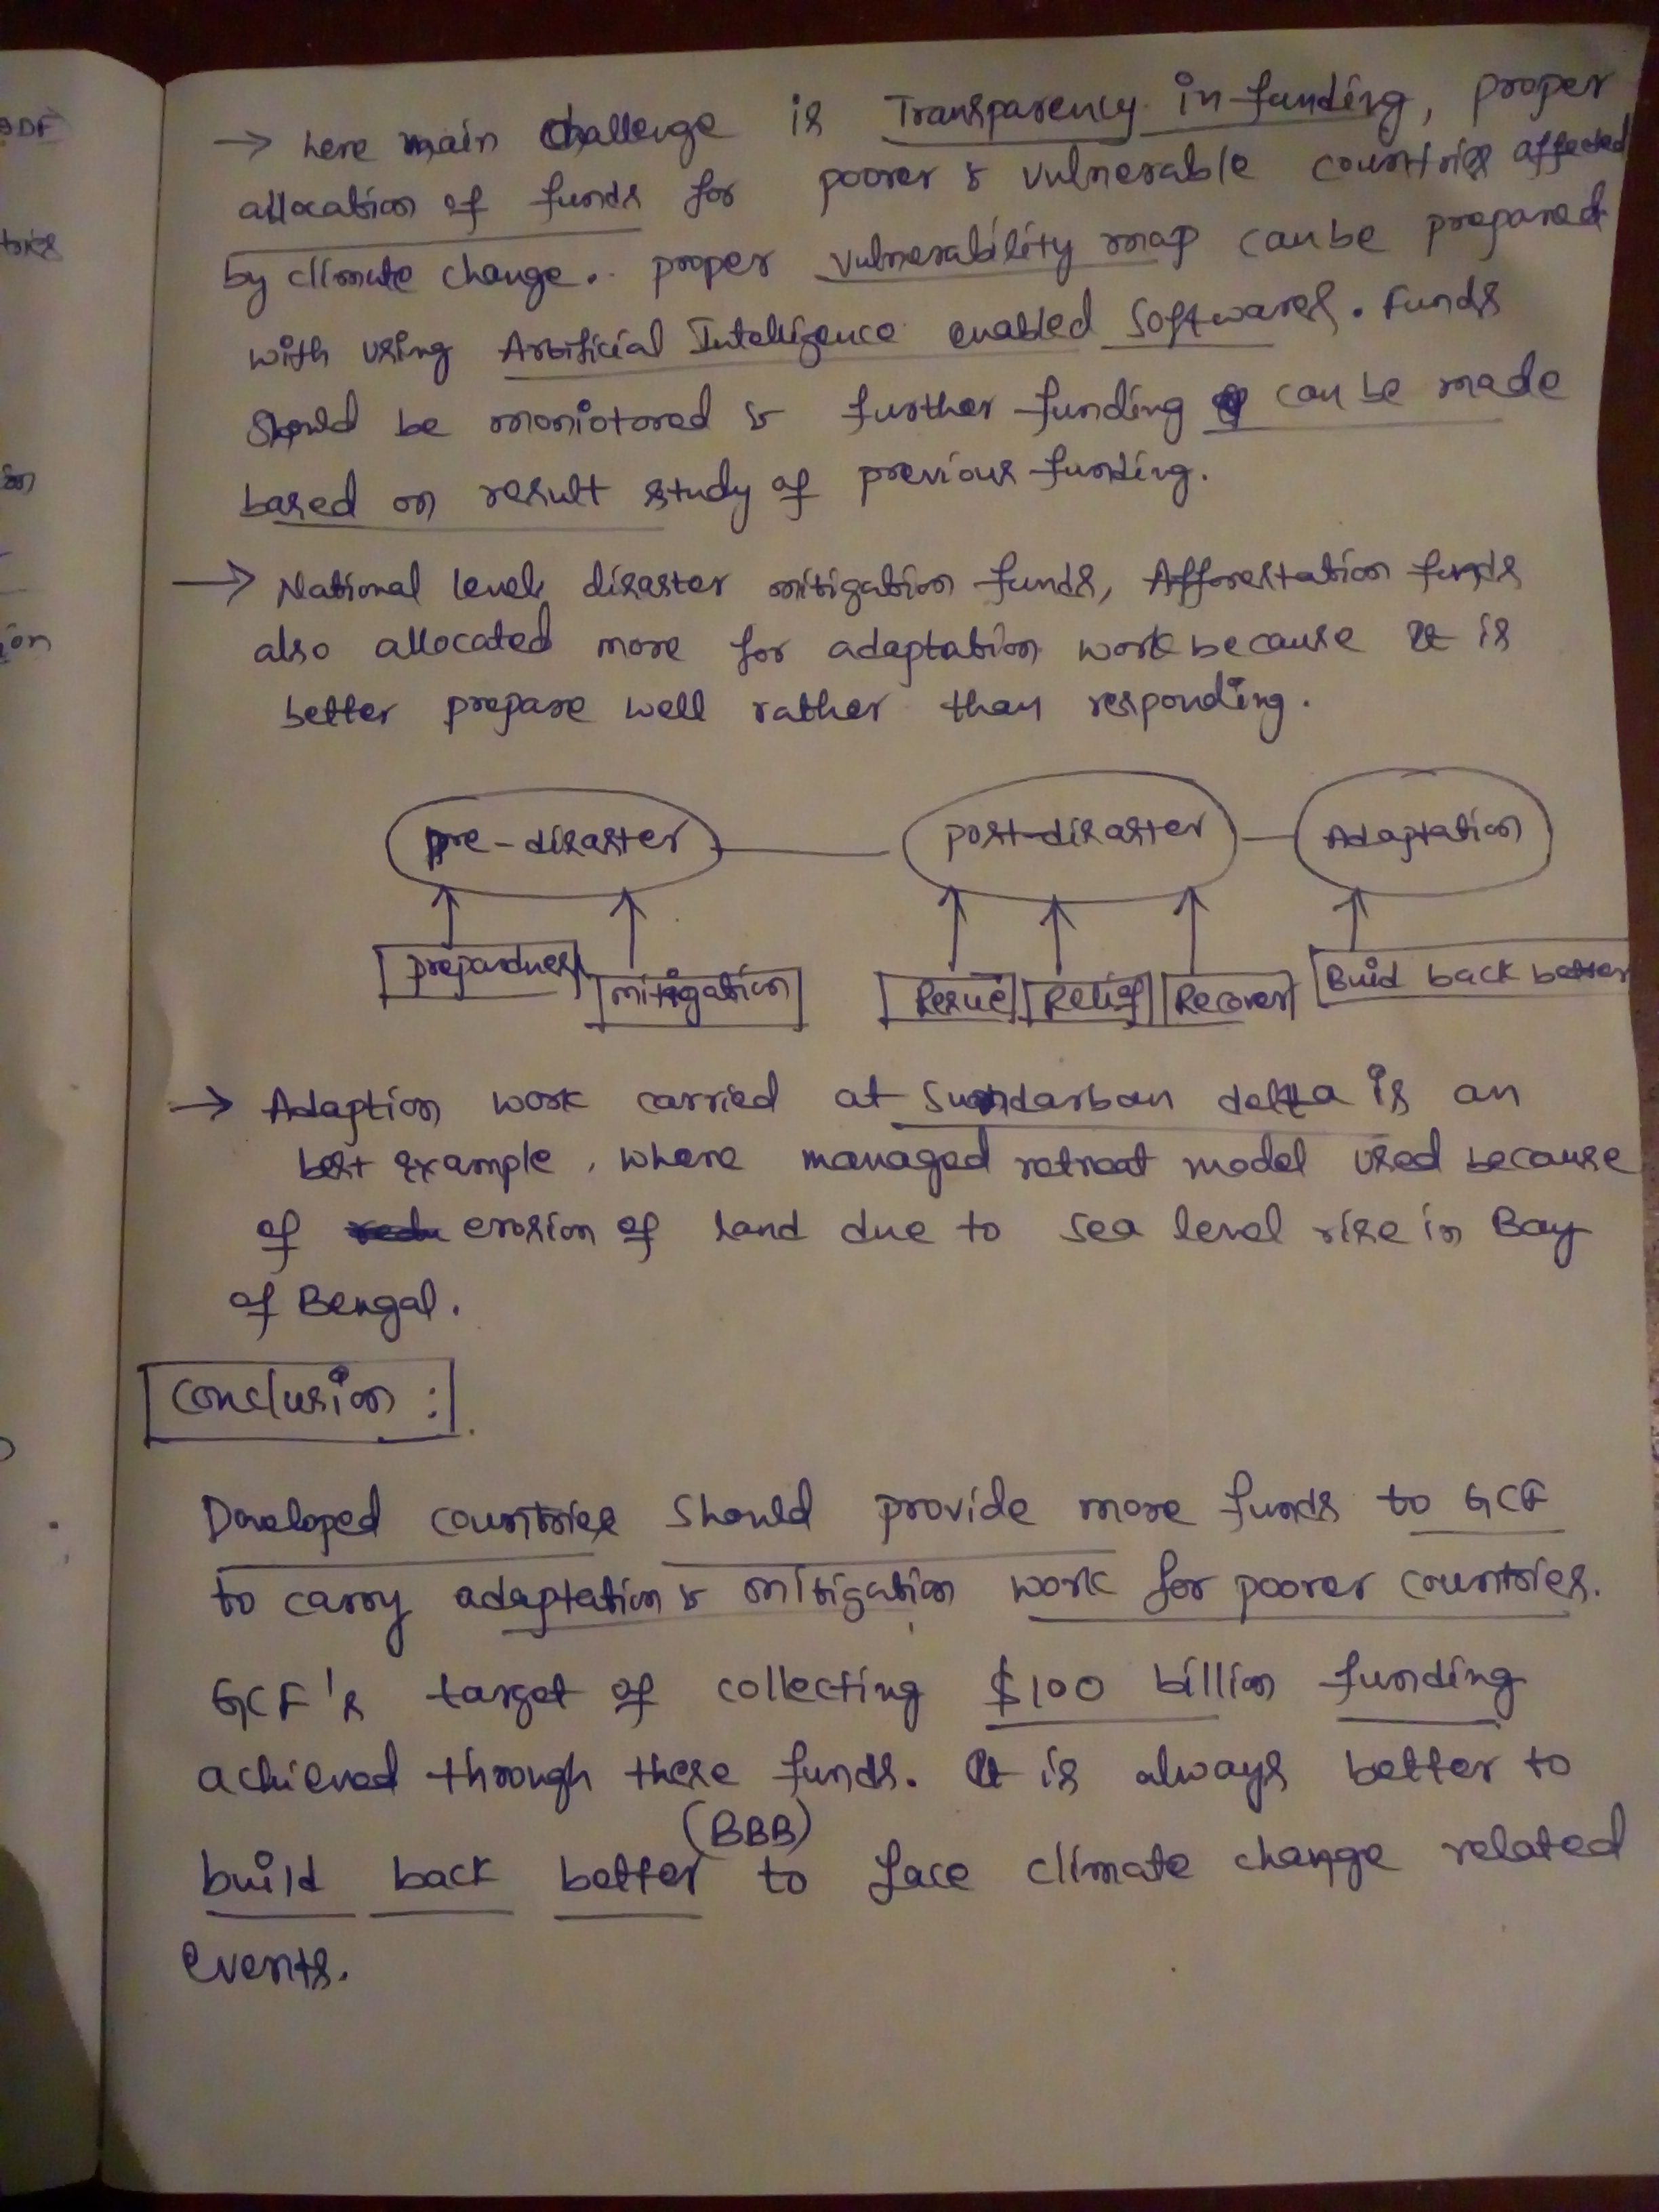 → here main challenge is Transparency in funding, proper
allocation of funds for poorer & vulnerable countries affected
by climate change. proper vulnerability map can be prepared
with using Artificial Intelligence enabled softwares. Funds
should be moniotored & further funding can be made
based on result study of previous funding.
→ National level disaster mitigation funds, Afforestation funds
also allocated more for adaptation work because it is
better prepare well rather than responding.
pre-disaster
post-disaster
Adaptation
preparedness
mitigation
Resue
Relief
Recover
Buid back better
→ Adaption work carried at Sundarban delta is an
best example, where managed retreat model used because
of erosion of land due to sea level rise in Bay
of Bengal.
Conclusion :
Developed countries should provide more funds to GCF
to carry adaptation & mitigation work for poorer countries.
GCF's target of collecting $100 billion funding
achieved through these funds. It is always better to
build back better (BBB) to face climate change related
events.
ion